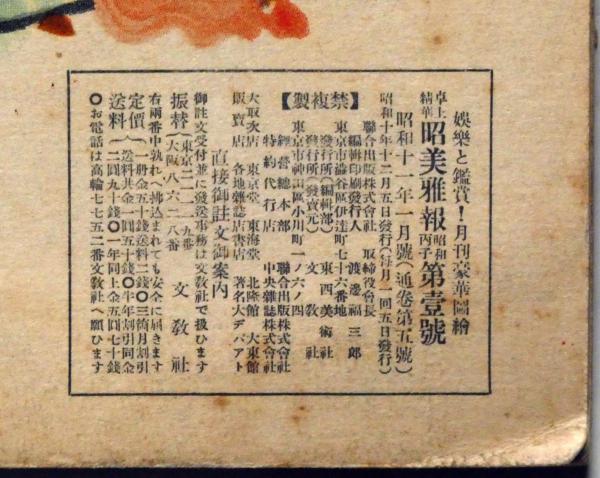 娛樂と鑑賞！月刊豪華圖繪
卓上精華 昭美雅報 昭和丙子 第壹號
昭和十一年一月號（通卷第五號）
昭和十年十二月五日發行（每月一回五日發行）
聯合出版株式會社 取締役會長
編輯印刷發行人 渡邊福三郎
東京市澁谷區伊達町七十六番地
發行所（編輯部） 東西美術社
【禁複製】
發行所（發賣元） 文敎社
東京市神田區小川町一ノ六ノ四
經營總本部 聯合出版株式會社
特約代行店 中央雜誌株式會社
大取次店 東京堂 東海堂 北隆館 大東館
販賣店 各地雜誌店書店 著名大デパアト
直接御註文御案內
御註文受付並に發送事務は文敎社で扱ひます
振替（東京二一二一九番
大阪八六二八番 文敎社
右兩番中孰れへ拂込まれても安全に届きます
定價 一册金五十錢送料二錢〇三箇月割引
送料 送料共金一圓五十錢〇半年割引同金
二圓九十錢〇一年同上金五圓七十錢
〇お電話は高輪七七五二番文敎社へ願ひます